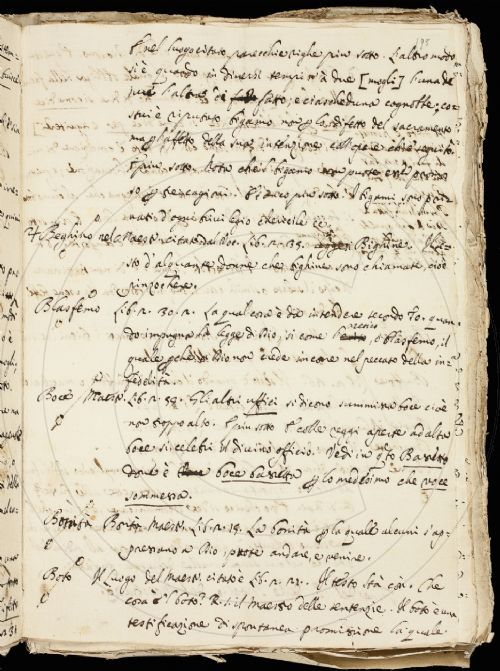 E nel luogo citato parecchie righe piu sotto. L'altro modo
si è quando in diversi tempi n'à due [mogli] l'una de
jure l'altra di fatto; è ciascheduna cognosce; co-
stui è riputato bigamo non difetto del sacramento
ma effetto della sua intenzione coll'opere ch'è seguito.
E piu sotto. Nota che'l bigamo non puote
so E poco piu sotto: I bigami sono pri-
vati d'ogni privilegio chericile ec.
Beghino nel Maestr. citato dal Voc. Lib. 2. 35. Bighine. Il te-
sto d'alquante donne che bighine sono chiamate, cioè
pinzochere.
Blasfemo Lib. 2. 30. 2. La qual cosa è da intendere secondo To: quan-
do impugna la legge di Dio, si come eretico, o blasfemo, il
quale Dio non crede incorre nel peccato della in-
fedelità.
Boce Maestr. Lib. 2. 39. Gli altri uffici si dicono summissa boce cioè
non troppo alto. E piu sotto E colle reggi aperte ad alta
boce si celebri il divino officio. Vedi in Bassetto
dove è boce bassetta lo medesimo che voce
sommessa.
Bontà Maestr. Lib. 2. 18. La bonità la quale alcuni s'ap-
pressano a Dio, puote andare, e venire.
Boto Il Luogo del Maestr. citato è Lib. 2. Il testo sta così. Che
cosa è 'l boto? R. s. il Maestro delle sentenzie. Il boto è una
testificazione di spontanea promissione la quale